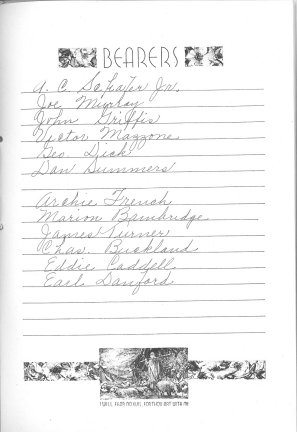 BEARERS
A. C. Schafer Jr.
Joe Murray
John Griffis
Victor Mazzone
Geo Dick
Dan Summers
Archie French
Marion Bainbridge
James Turner
Chas. Buckland
Eddie Caddell
Earl Danford
I WILL FEAR NO EVIL FOR THOU ART WITH ME